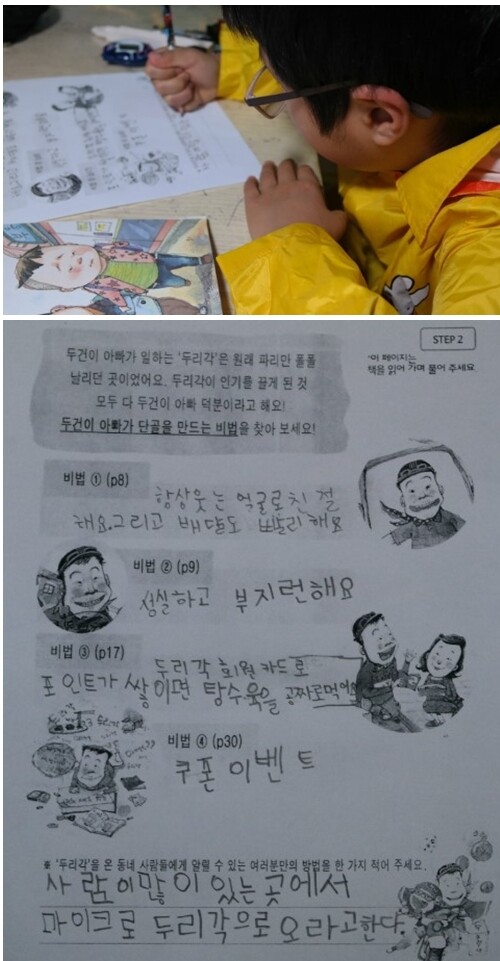 STEP 2
*이 페이지는
책을 읽어 가며 풀어 주세요.
두건이 아빠가 일하는 '두리각'은 원래 파리만 폴폴
날리던 곳이었어요. 두리각이 인기를 끌게 된 것
모두 다 두건이 아빠 덕분이라고 해요!
두건이 아빠가 단골을 만드는 비법을 찾아 보세요!
비법 ① (p8)
항상웃는 얼굴로친절
해요.그리고 배달도 빠리해요
비법 ② (p9)
성실하고 부지런해요
비법 ③ (p17)
두리각 회원카드로
포인트가 쌓이면 탕수육을 공짜로먹어요
비법 ④ (p30)
쿠폰 이벤트
※ '두리각'을 온 동네 사람들에게 알릴 수 있는 여러분만의 방법을 한 가지 적어 주세요.
사람이많이 있는곳에서
마이크로 두리각으로오라고한다.